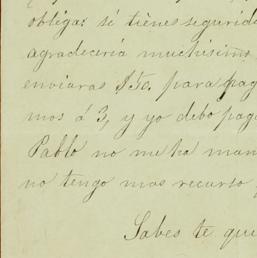 obliga: sí tienes segurida
agradeceria muchisimo
enviaras $50. para pag
mos á 3, y yo debo pag
Pablo no me ha man
no tengo mas recurso
Sabes te qui